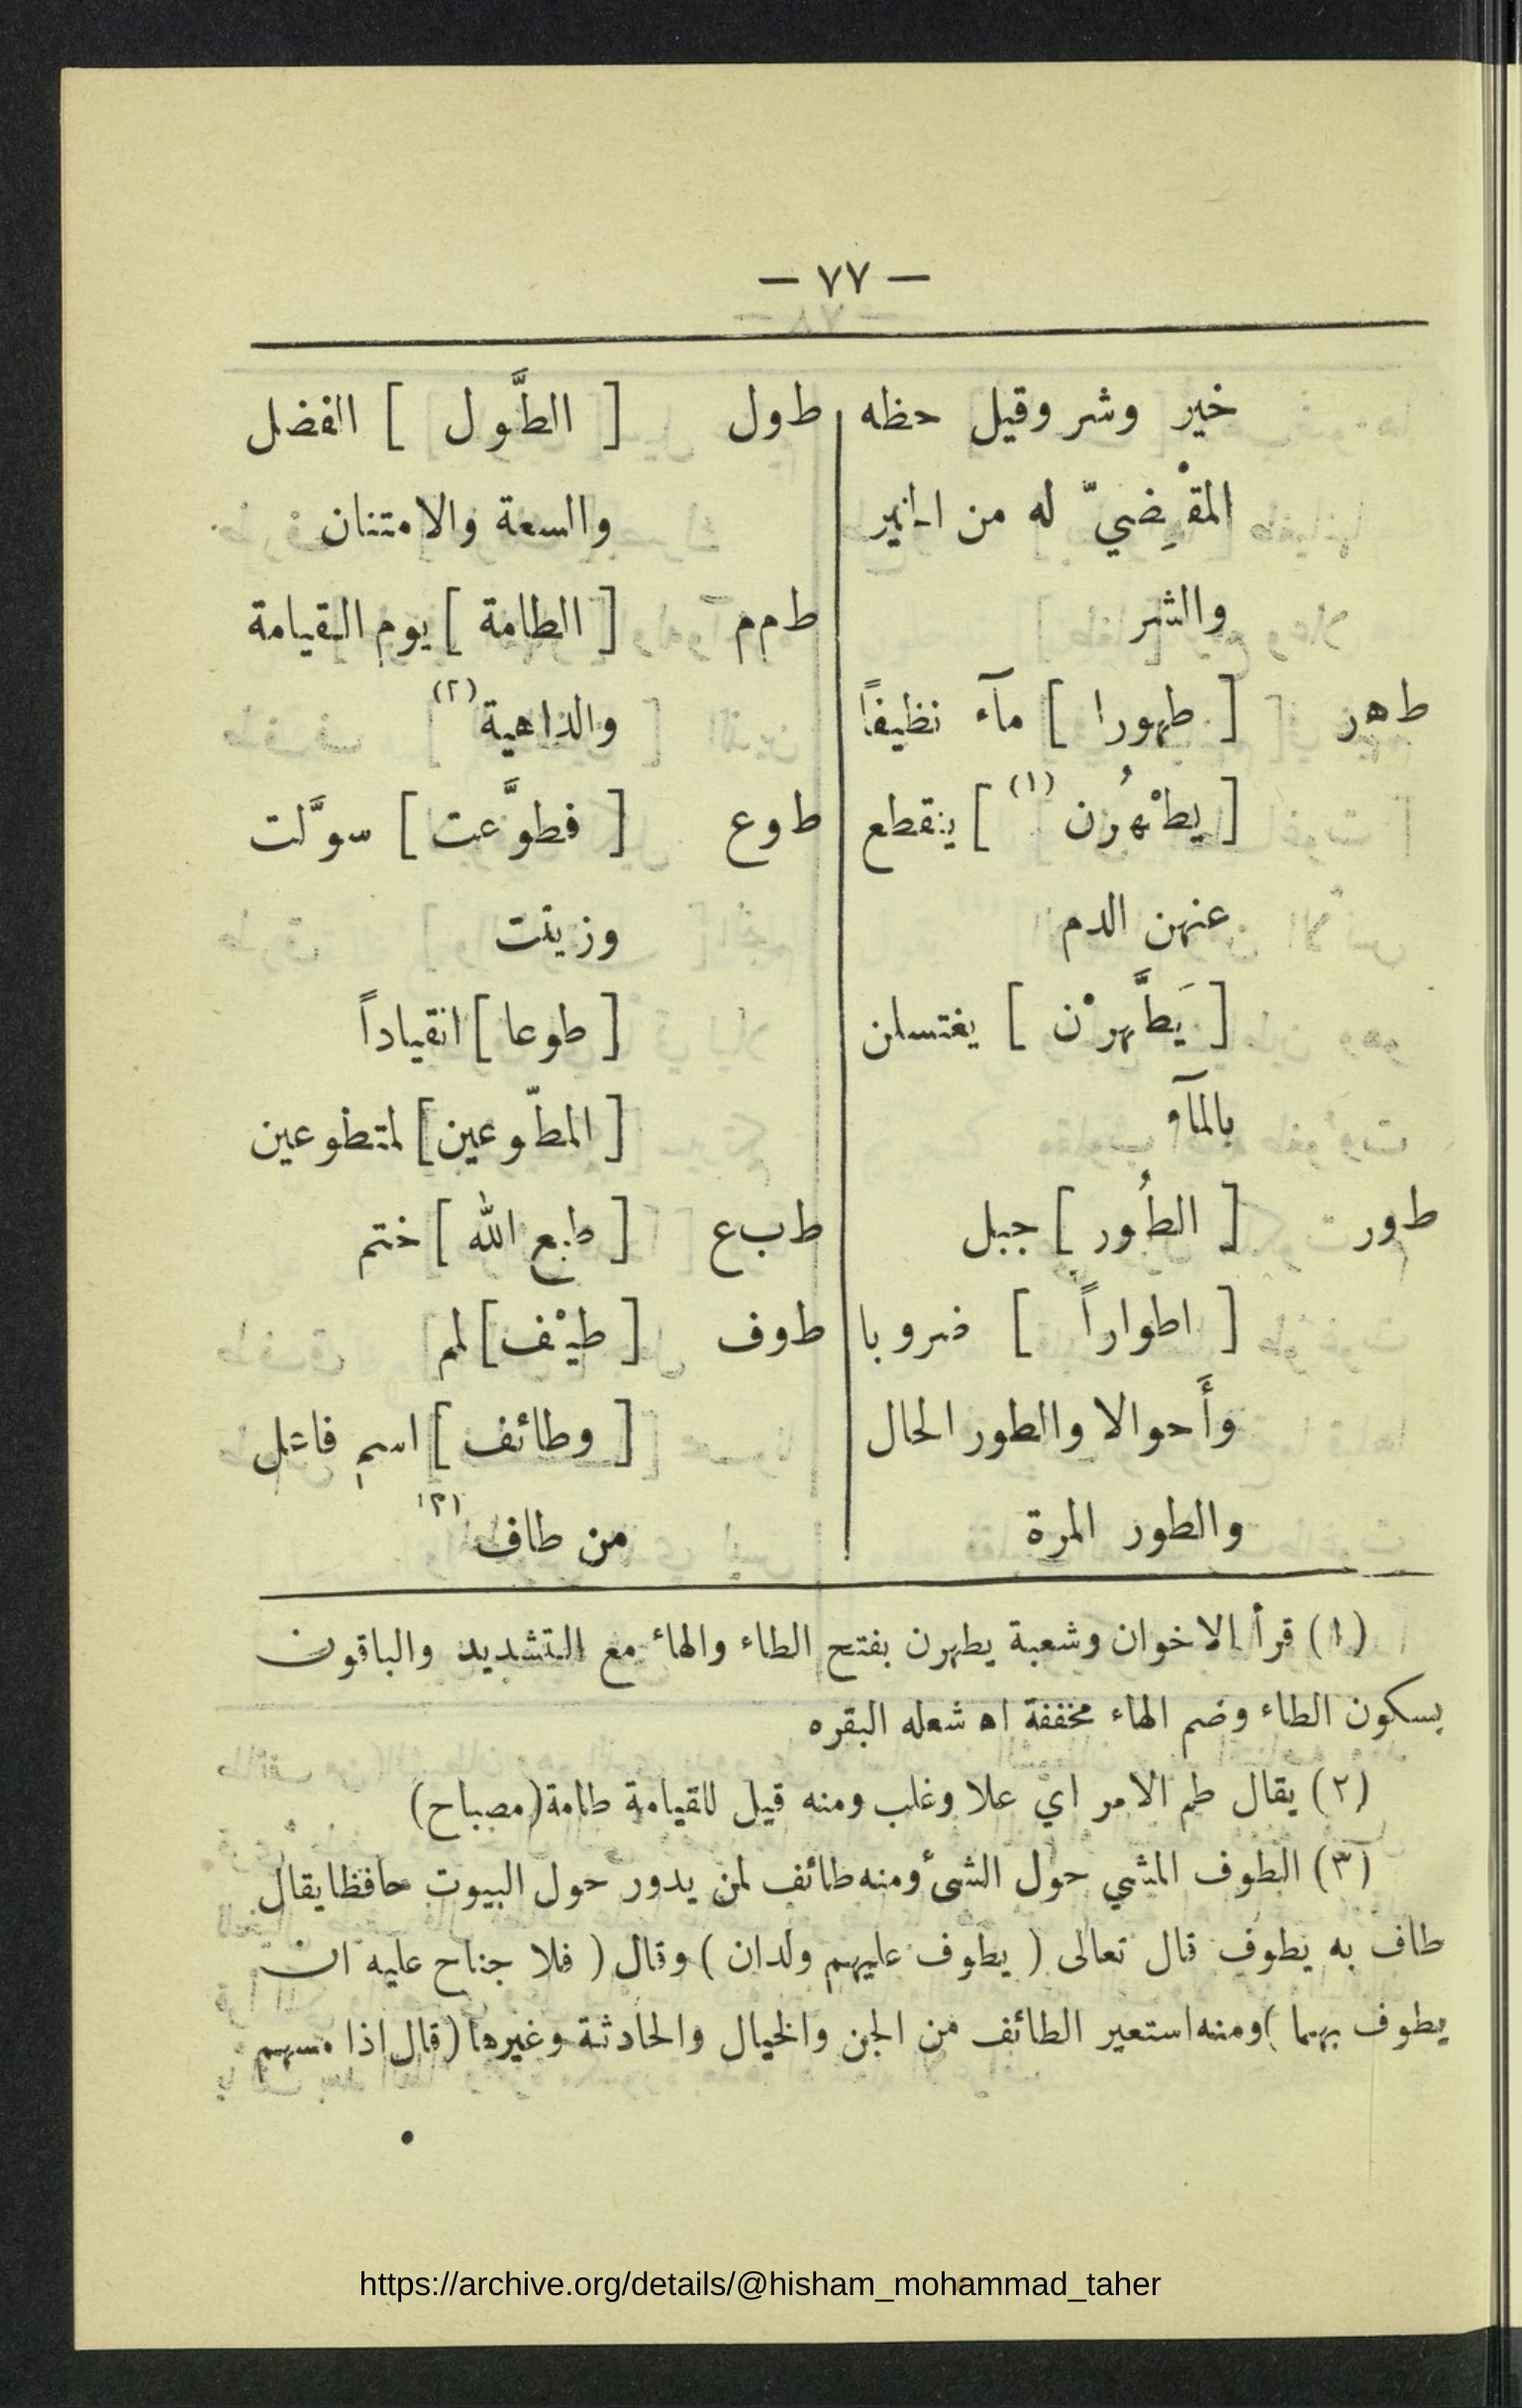 — ٧٧ —
خير وشر وقيل حظه
المقْضِيّ له من الخير
والشر
ط‍ه‍ر [ طهورا ] مآء نظيفاً
[ يطْهُرن (١) ] ينقطع
عنهن الدم
[ يَطَّهرْن ] يغتسلن
بالمآء
ط‍ور [ الطُور ] جبل
[ اطواراً ] ضروبا
وأَحوالا والطور الحال
والطور المرة
ط‍ول [ الطَّول ] الفضل
والسعة والامتنان
ط‍م‍م [ الطامة ] يوم القيامة
والداهية (٢)
ط‍وع [ فطوَّعت ] سوَّلت
وزينت
[ طوعا ] انقياداً
[ المطّوعين ] لمتطوعين
ط‍ب‍ع [ طبع الله ] ختم
ط‍وف [ طيْف ] لمم
[ وطائف ] اسم فاعل
من طاف (٣)
(١) قرأ الاخوان وشعبة يطهرن بفتح الطاء والهاء مع التشديد والباقون
بسكون الطاء وضم الهاء مخففة اه شعله البقره
(٢) يقال طم الامر اي علا وغلب ومنه قيل للقيامة طامة (مصباح)
(٣) الطوف المشي حول الشئ ومنه طائف لمن يدور حول البيوت حافظا يقال
طاف به يطوف قال تعالى ( يطوف عليهم ولدان ) وقال ( فلا جناح عليه ان
يطوف بهما ) ومنه استعير الطائف من الجن والخيال والحادثة وغيرها (قال اذا مسهم
https://archive.org/details/@hisham_mohammad_taher